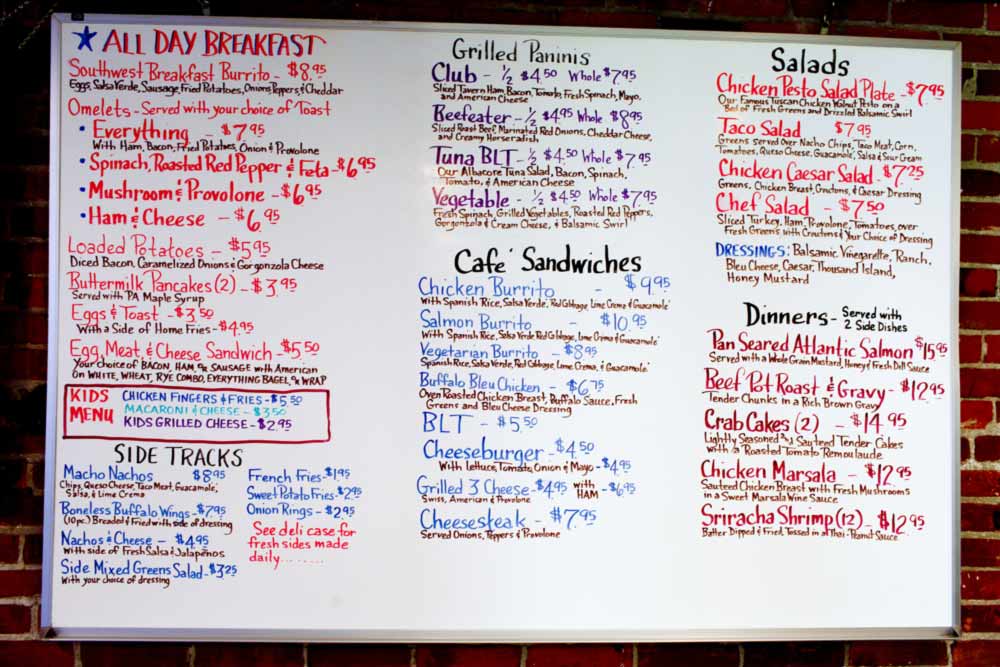 ★ ALL DAY BREAKFAST
Southwest Breakfast Burrito - $8.95
Eggs, Salsa Verde, Sausage, Fried Potatoes, Onions, Peppers, & Cheddar
Omelets - Served with your choice of Toast
• Everything - $7.95
With Ham, Bacon, Fried Potatoes, Onion & Provolone
• Spinach, Roasted Red Pepper & Feta - $6.95
• Mushroom & Provolone - $6.95
• Ham & Cheese - $6.95
Loaded Potatoes - $5.95
Diced Bacon, Caramelized Onions & Gorgonzola Cheese
Buttermilk Pancakes (2) - $3.95
Served with PA Maple Syrup
Eggs & Toast - $3.50
With a Side of Home Fries - $4.95
Egg, Meat, & Cheese Sandwich - $5.50
Your choice of BACON, HAM, OR SAUSAGE with American
On WHITE, WHEAT, RYE COMBO, EVERYTHING BAGEL, OR WRAP
KIDS MENU
CHICKEN FINGERS & FRIES - $5.50
MACARONI & CHEESE - $3.50
KIDS GRILLED CHEESE - $2.95
SIDE TRACKS
Macho Nachos $8.95
Chips, Queso Cheese, Taco Meat, Guacamole,
Salsa, & Lime Crema
Boneless Buffalo Wings - $7.95
(10pc.) Breaded & Fried with side of dressing
Nachos & Cheese - $4.95
with side of Fresh Salsa & Jalapeños
Side Mixed Greens Salad - $3.25
with your choice of dressing
French Fries - $1.95
Sweet Potato Fries - $2.95
Onion Rings - $2.95
See deli case for
fresh sides made
daily........
Grilled Paninis
Club - 1/2 $4.50 Whole $7.95
Sliced Tavern Ham, Bacon, Tomato, Fresh Spinach, Mayo,
and American Cheese
Beefeater - 1/2 $4.95 Whole $8.95
Sliced Roast Beef, Marinated Red Onions, Cheddar Cheese,
and Creamy Horseradish
Tuna BLT - 1/2 $4.50 Whole $7.95
Our Albacore Tuna Salad, Bacon, Spinach,
Tomato, & American Cheese
Vegetable - 1/2 $4.50 Whole $7.95
Fresh Spinach, Grilled Vegetables, Roasted Red Peppers,
Gorgonzola & Cream Cheese, & Balsamic Swirl
Cafe' Sandwiches
Chicken Burrito - $9.95
with Spanish Rice, Salsa Verde, Red Cabbage, Lime Crema & Guacamole'
Salmon Burrito - $10.95
with Spanish Rice, Salsa Verde Red Cabbage, Lime Crema & Guacamole'
Vegetarian Burrito - $8.95
Spanish Rice, Salsa Verde, Red Cabbage, Lime Crema, & Guacamole'
Buffalo Bleu Chicken - $6.75
Oven Roasted Chicken Breast, Buffalo Sauce, Fresh
Greens and Bleu Cheese Dressing
BLT - $5.50
Cheeseburger - $4.50
With Lettuce, Tomato, Onion & Mayo - $4.95
Grilled 3 Cheese - $4.95 with HAM - $6.95
Swiss, American & Provolone
Cheesesteak - $7.95
Served Onions, Peppers & Provolone
Salads
Chicken Pesto Salad Plate - $7.95
Our Famous Tuscan Chicken Walnut Pesto on a
Bed of Fresh Greens and Drizzled Balsamic Swirl
Taco Salad $7.95
Greens Served Over Nacho Chips, Taco Meat, Corn,
Tomatoes, Queso Cheese, Guacamole, Salsa & Sour Cream
Chicken Caesar Salad - $7.25
Greens, Chicken Breast, Croutons, & Caesar Dressing
Chef Salad - $7.50
Sliced Turkey, Ham, Provolone, Tomatoes, over
Fresh Greens with Croutons & Your Choice of Dressing
DRESSINGS: Balsamic Vinegarette, Ranch,
Bleu Cheese, Caesar, Thousand Island,
Honey Mustard
Dinners - Served with 2 Side Dishes
Pan Seared Atlantic Salmon $15.95
Served with a Whole Grain Mustard, Honey & Fresh Dill Sauce
Beef Pot Roast & Gravy - $12.95
Tender Chunks in a Rich Brown Gravy
Crab Cakes (2) - $14.95
Lightly Seasoned Sauteed Tender Cakes
with a Roasted Tomato Remoulaude
Chicken Marsala - $12.95
Sauteed Chicken Breast with Fresh Mushrooms
in a Sweet Marsala Wine Sauce
Sriracha Shrimp (12) - $12.95
Batter Dipped & Fried, Tossed in a Thai-Peanut Sauce